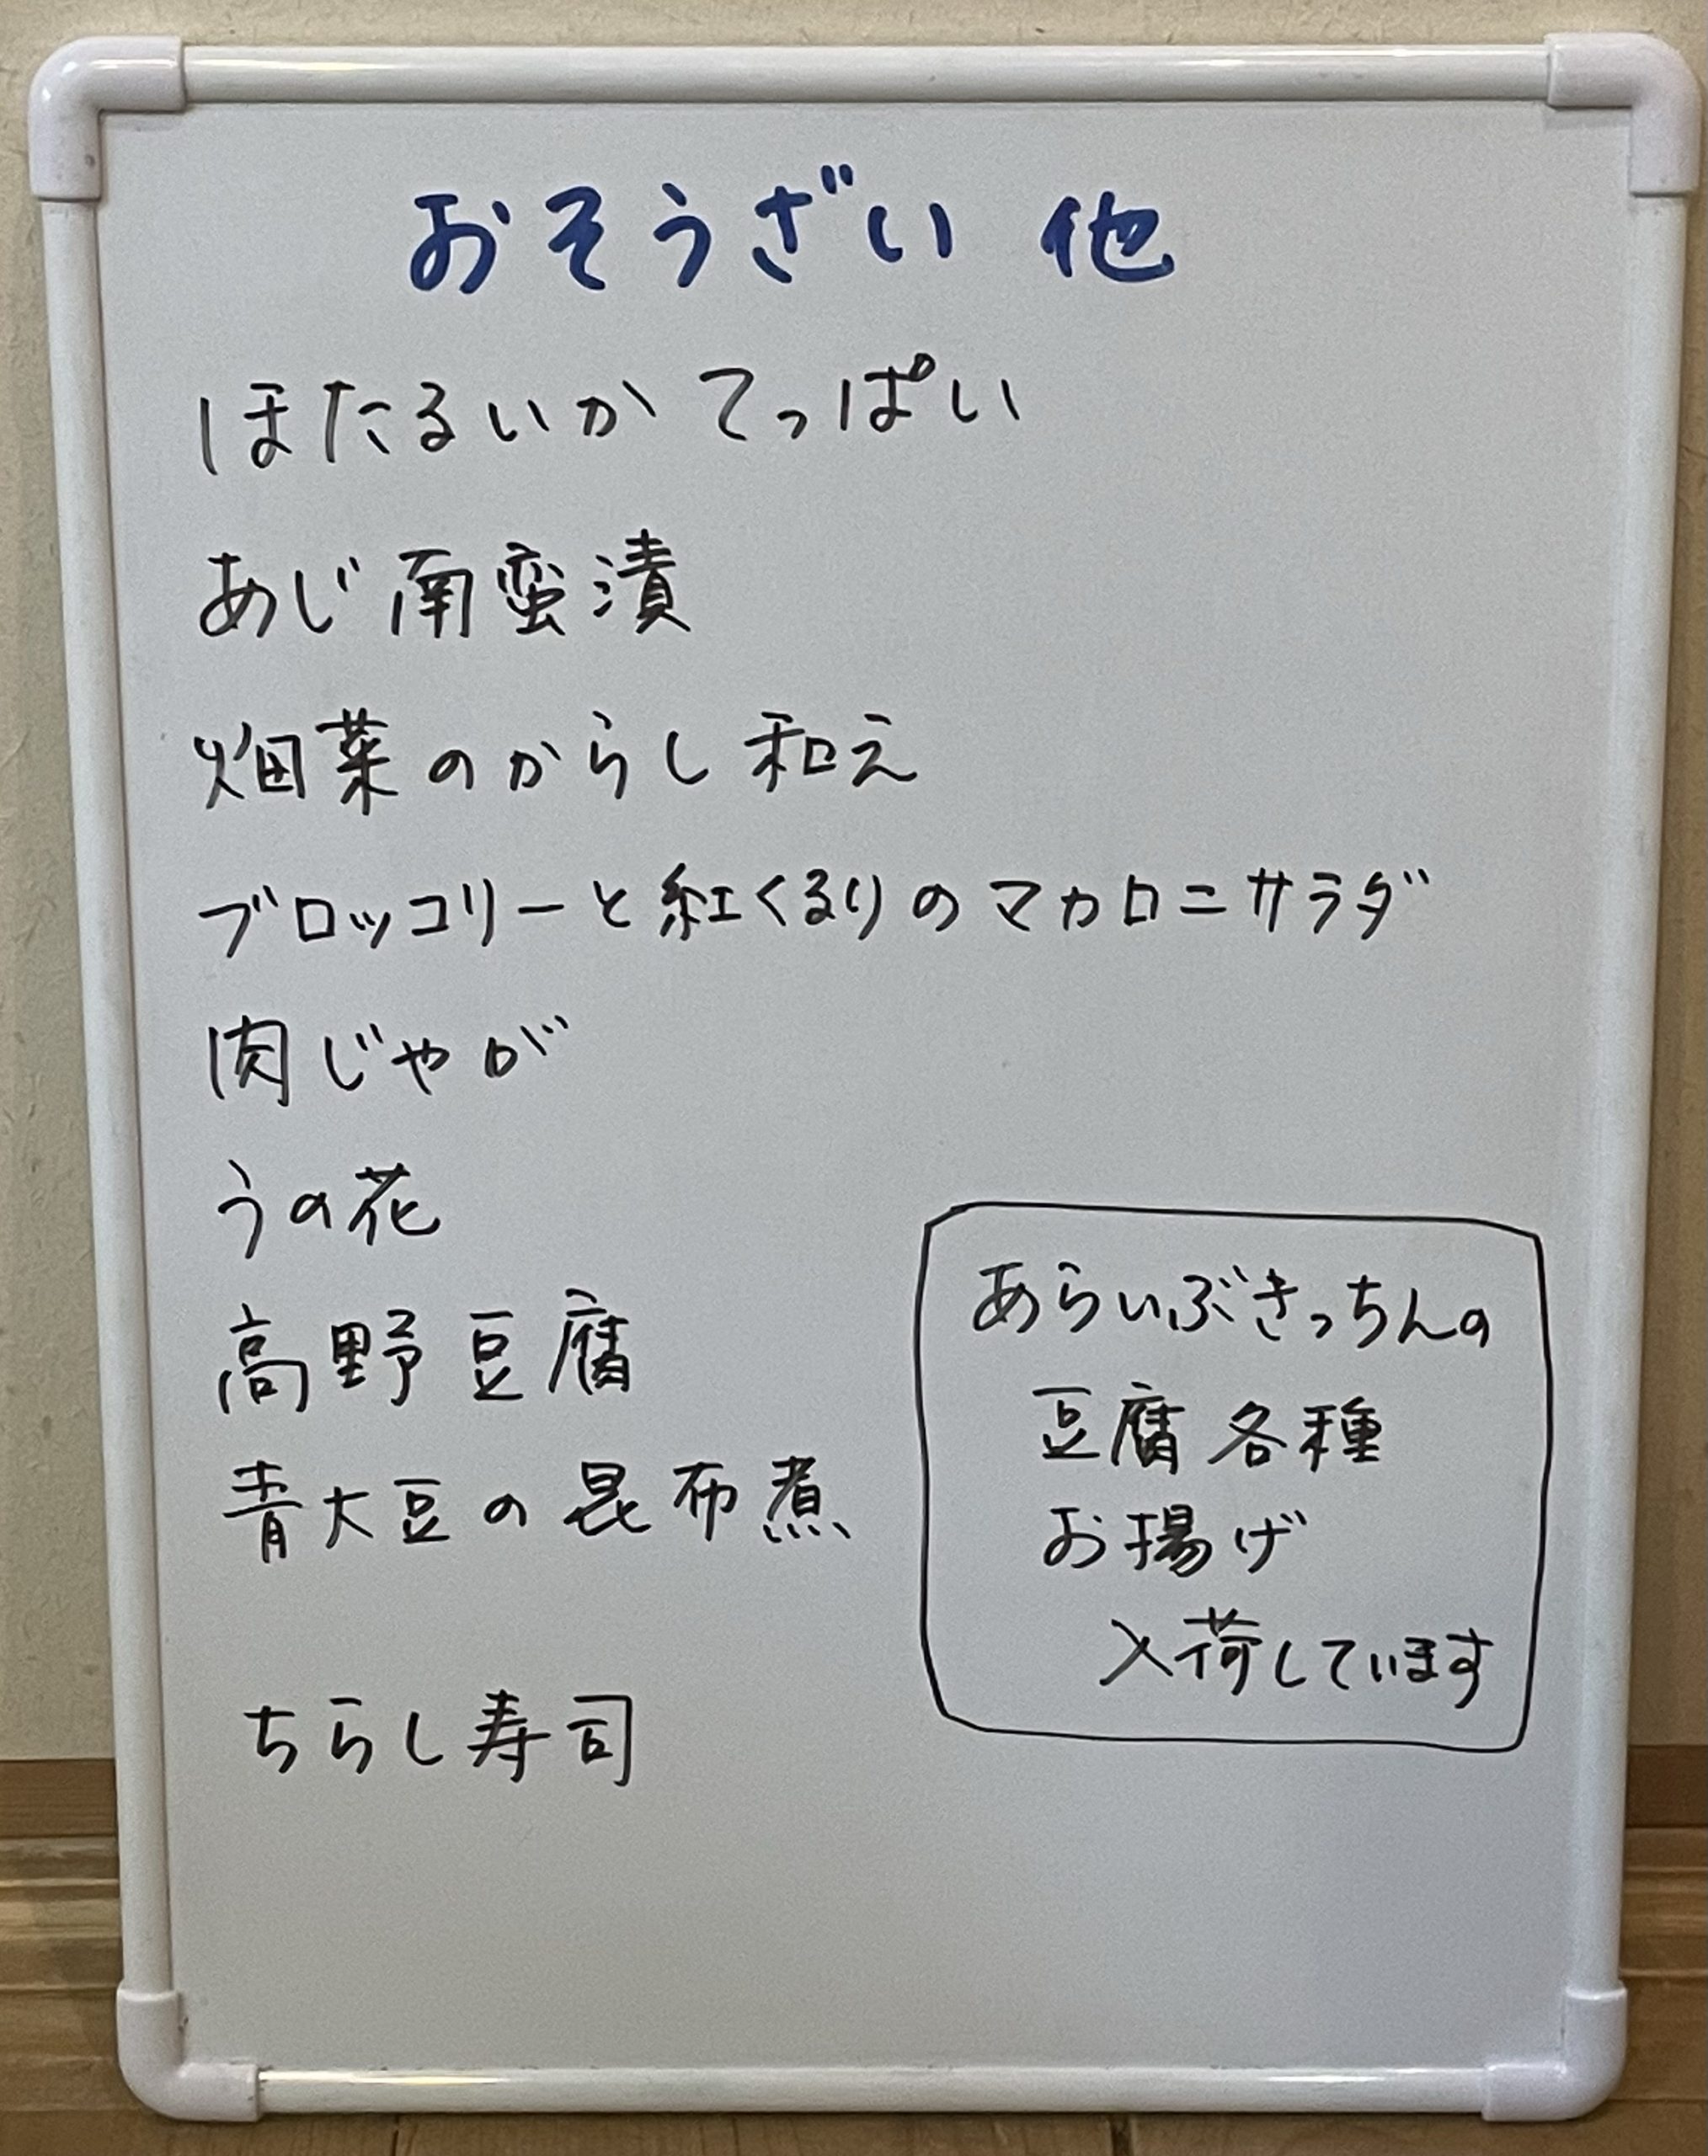 おそうざい 他
ほたるいか てっぱい
あじ南蛮漬
畑菜のからし和え
ブロッコリーと紅くるりのマカロニサラダ
肉じゃが
うの花
高野豆腐
青大豆の昆布煮
ちらし寿司
あらいぶきっちんの
豆腐各種
お揚げ
入荷しています